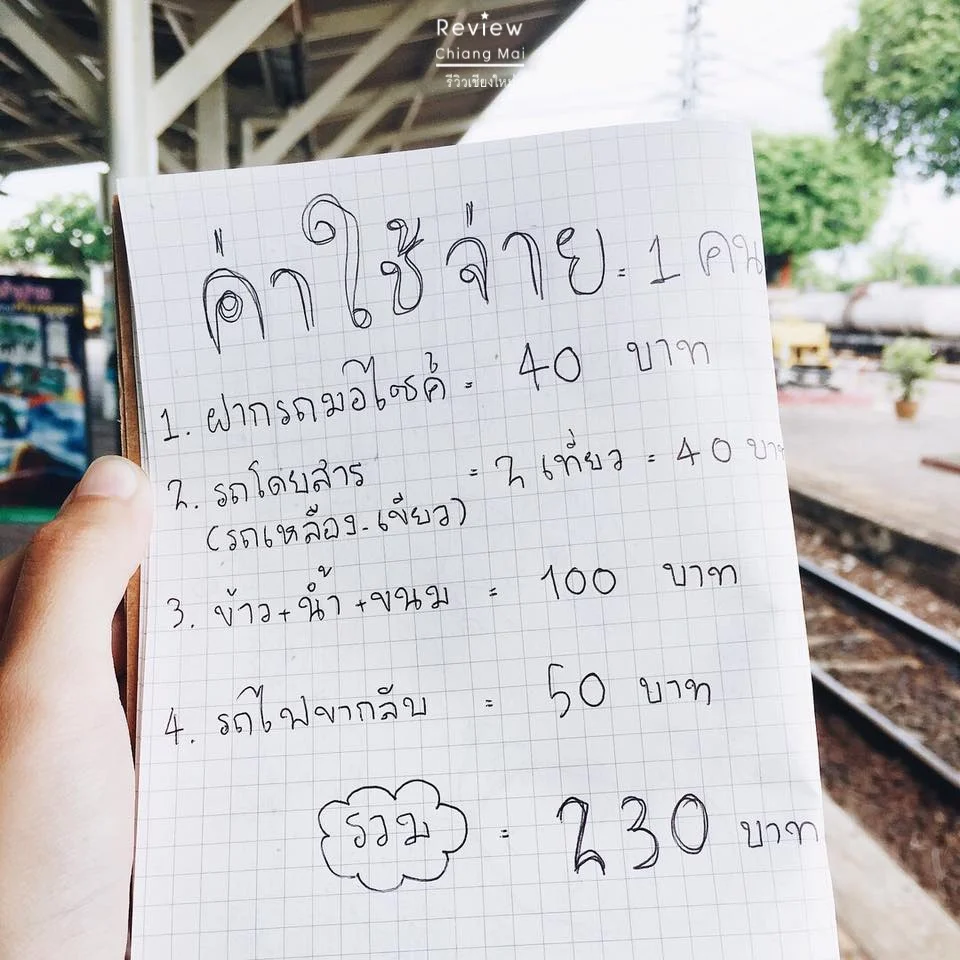 Review
Chiang Mai
รีวิวเชียงใหม่
ค่าใช้จ่าย = 1 คน
1. ฝากรถมอไซค์ = 40 บาท
2. รถโดยสาร = 2 เที่ยว = 40 บาท
(รถเหลือง-เขียว)
3. ข้าว+น้ำ+ขนม = 100 บาท
4. รถไฟขากลับ = 50 บาท
รวม = 230 บาท